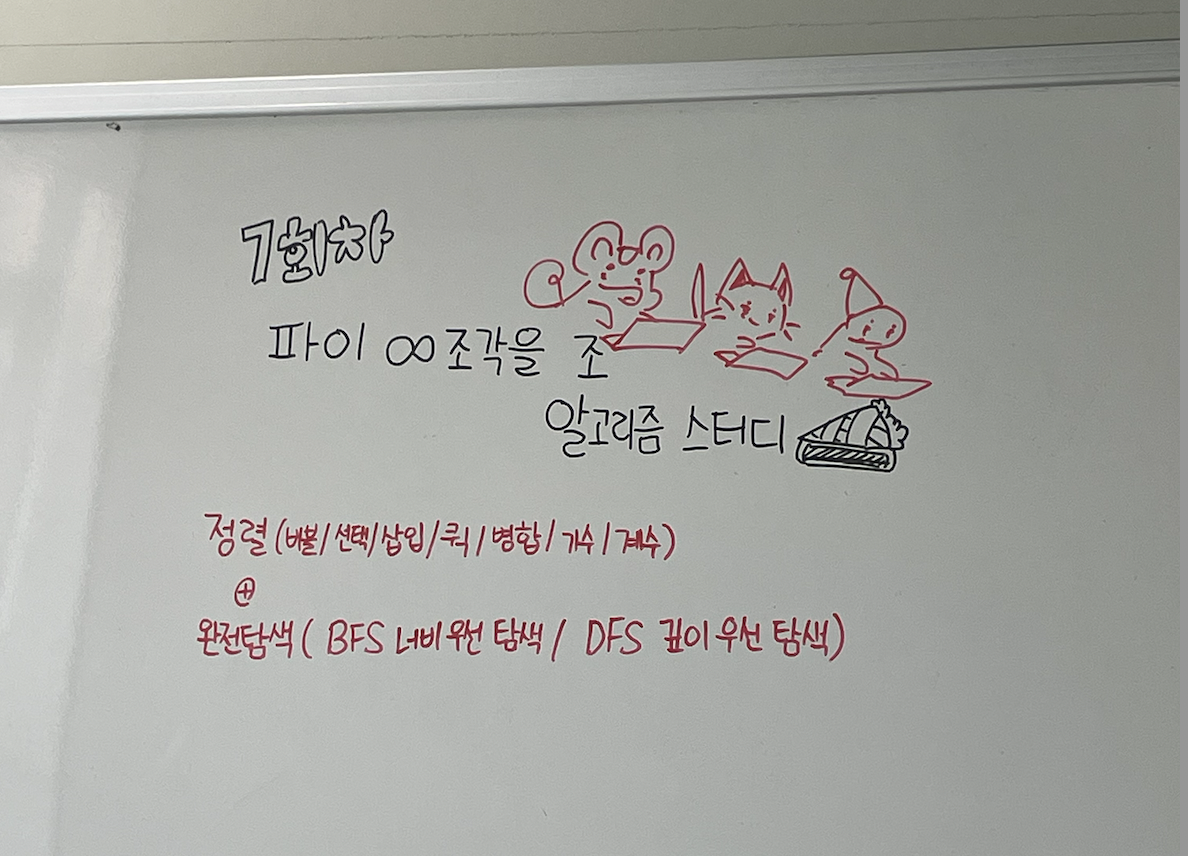 7회차
파이 ∞조각을 조
알고리즘 스터디
정렬(버블/선택/삽입/퀵/병합/기수/계수)
⊕
완전탐색( BFS 너비 우선 탐색 / DFS 깊이 우선 탐색)